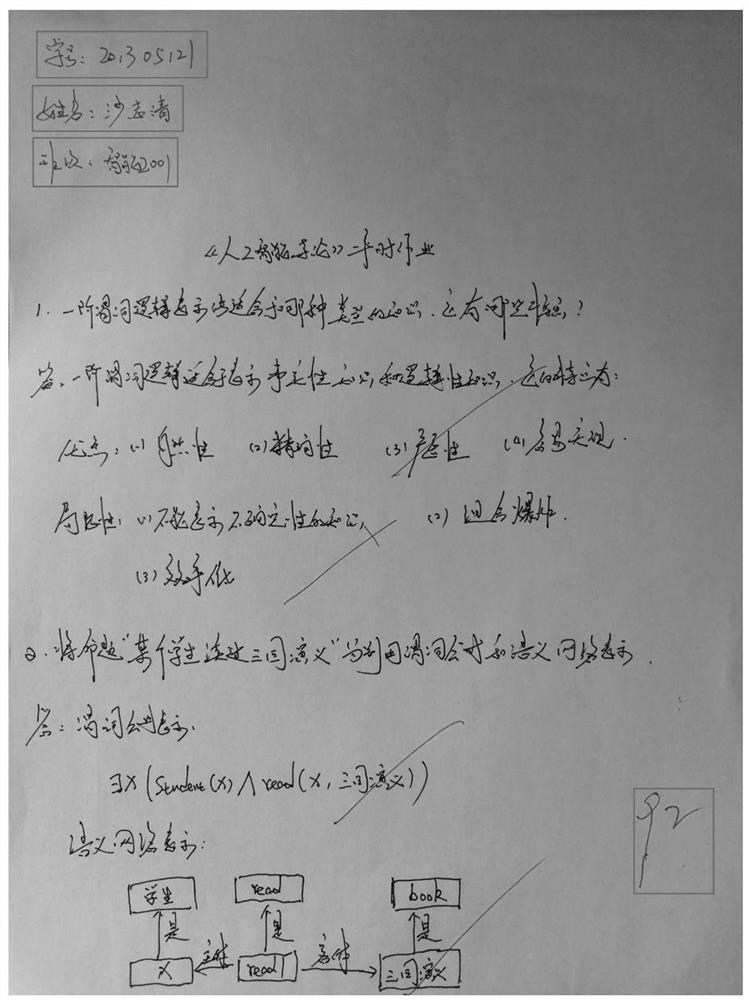 学号：201305121
姓名：沙志清
班次：智能2001
《人工智能导论》平时作业
1. 一阶谓词逻辑表示法适合于哪种类型的知识．它有哪些特点？
答．一阶谓词逻辑适合于表示事实性知识和逻辑性知识．它的特点为：
优点：(1) 自然性 (2) 精确性 (3) 严密性 (4) 容易实现．
局限性：(1) 不能表示不确定性的知识 (2) 组合爆炸．
(3) 效率低
2．将命题“某个学生读过三国演义”分别用谓词公式和语义网络表示．
答：谓词公式表示．
∃x(Student(x)∧read(x, 三国演义))
语义网络表示：
学生 read book
是 是 是
x 主体 read 客体 三国演义
92